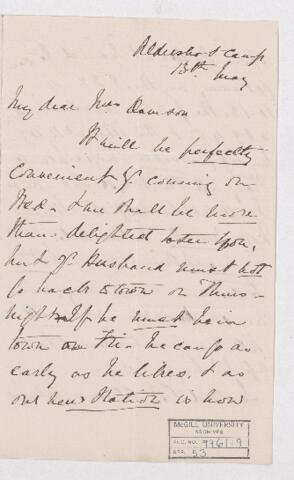 Aldershot Camp
13th May
My dear Mrs Dawson
It will be perfectly
convenient yr coming on
Wed. & we shall be more
than delighted to see you,
but yr Husband must not
go back to town on Thurs-
night. If he must be in
town on Fri. he can go as
early as he likes, & as
our new Station is now
McGILL UNIVERSITY
ARCHIVES
ACC. NO. 976/19
REF. 53